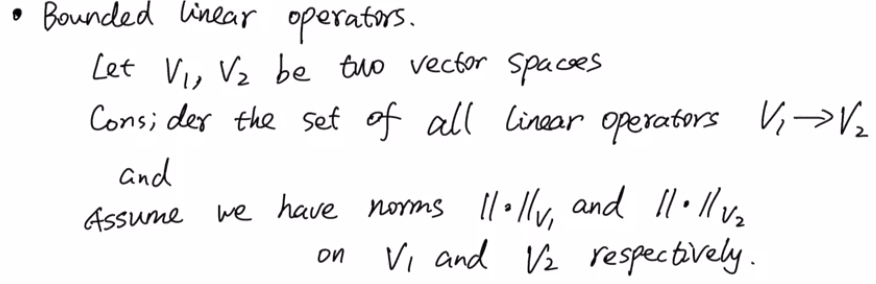 • Bounded linear operators.
Let V₁, V₂ be two vector spaces
Consider the set of all linear operators V₁→V₂
and
Assume we have norms ||•||_V₁ and ||•||_V₂
on V₁ and V₂ respectively.